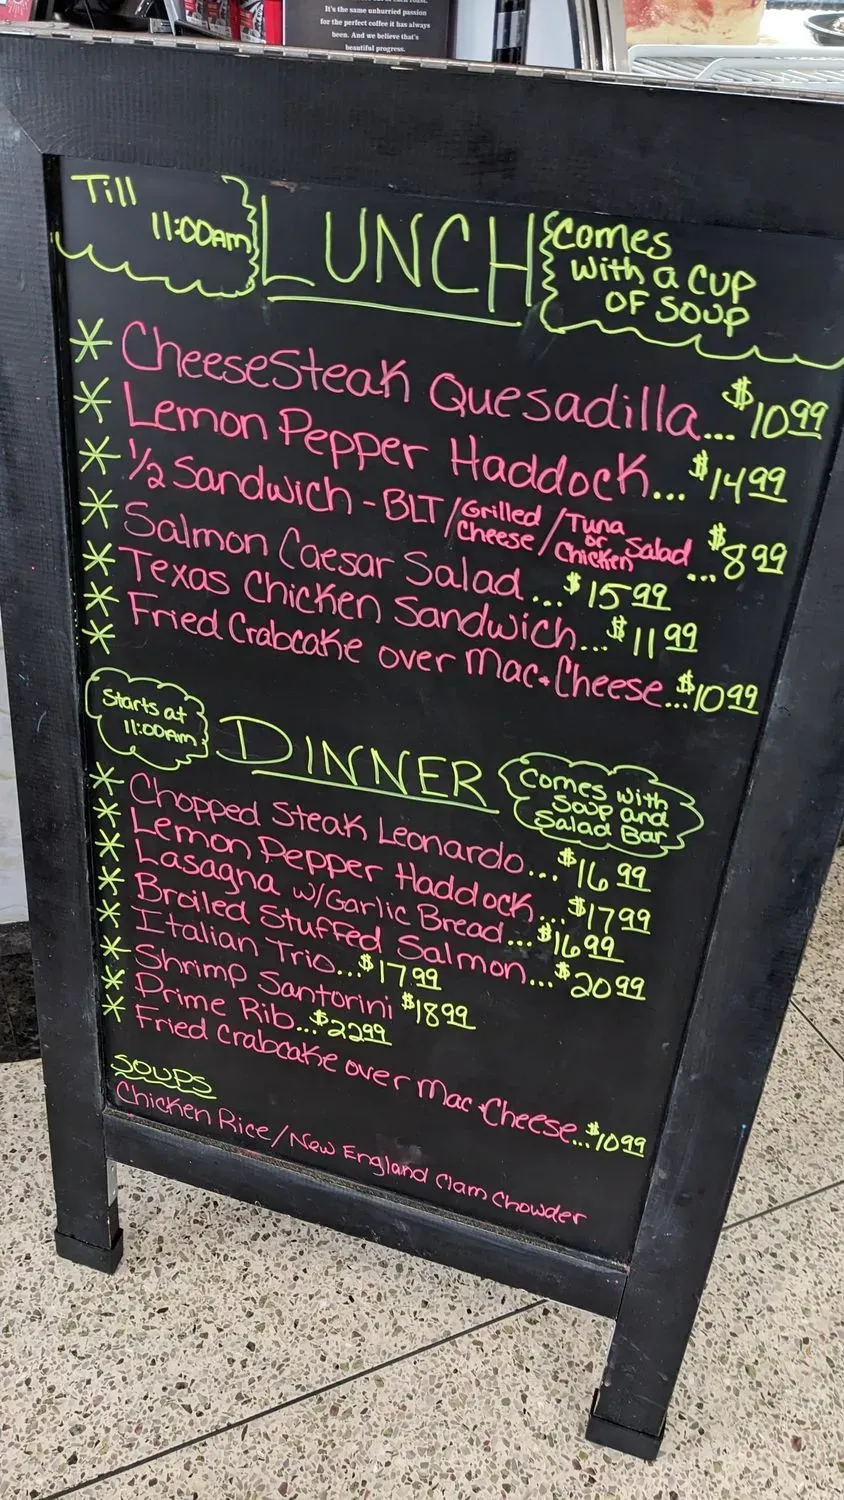 It's the same unhurried passion
for the perfect coffee it has always
been. And we believe that's
beautiful progress.
Till
11:00am
LUNCH
Comes
with a cup
of soup
* CheeseSteak Quesadilla... $10.99
* Lemon Pepper Haddock... $14.99
* 1/2 Sandwich - BLT/Grilled Cheese/Tuna or Chicken Salad... $8.99
* Salmon Caesar Salad... $15.99
* Texas Chicken Sandwich... $11.99
* Fried Crabcake over Mac + Cheese... $10.99
*
Starts at
11:00am
DINNER
Comes with
Soup and
Salad Bar
* Chopped Steak Leonardo... $16.99
* Lemon Pepper Haddock... $17.99
* Lasagna w/Garlic Bread... $16.99
* Broiled Stuffed Salmon... $20.99
* Italian Trio... $17.99
* Shrimp Santorini $18.99
* Prime Rib... $22.99
* Fried Crabcake over Mac + Cheese... $10.99
SOUPS
Chicken Rice/New England Clam Chowder